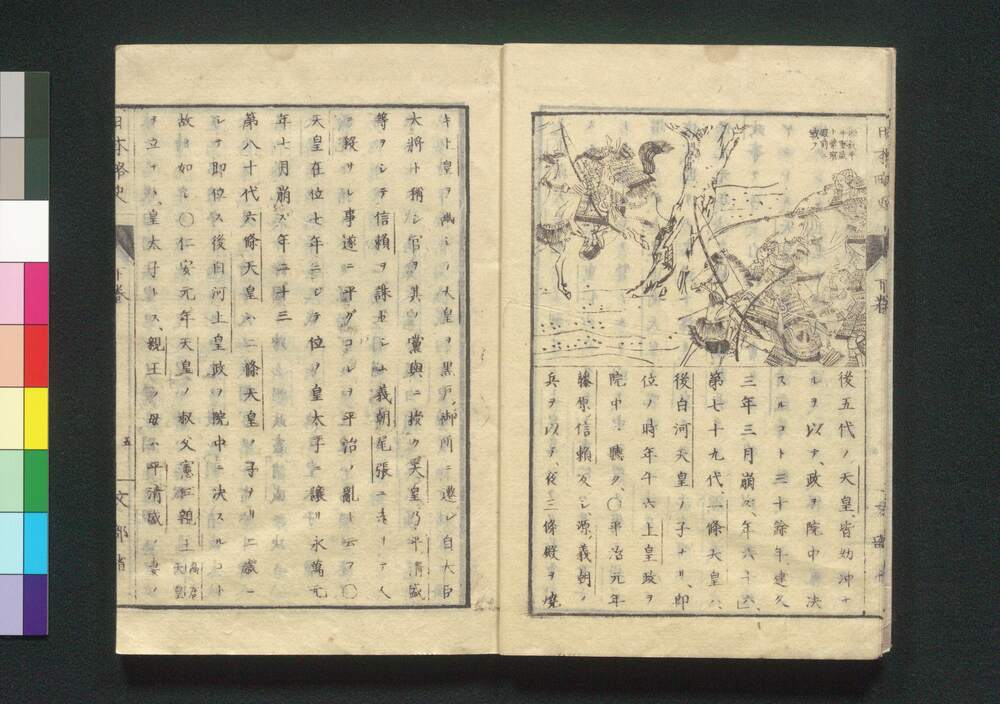 後五代ノ天皇皆幼冲ナ
ルヲ以テ、政ヲ院中ニ決
スルコト三十餘年、建久
三年三月崩ス、年六十六、
第七十九代二條天皇ハ、
後白河天皇ノ子ナリ、即
位ノ時年十六上皇政ヲ
院中ニ聽ク、〇平治元年
藤原信賴反シ、源義朝ノ
兵ヲ以テ、夜三條殿ヲ燒
キ上皇ヲ
天皇ヲ黑戸ノ御所ニ遷シ自大臣
大將ト稱シ官ヲ其ノ黨與ニ授ク天皇乃平清盛
等ヲシテ信賴ヲ誅セシム義朝尾張ニ走リテ人
殺サル事遂ニ平グコレヲ平治ノ亂ト云フ〇
天皇在位七年ニシテ位ヲ皇太子ニ讓リ永萬元
年七月崩ズ年二十三
第八十代六條天皇ハ二條天皇ノ子ナリ二歳ニ
シテ即位ス後白河上皇政ヲ院中ニ決スルコト
故ノ如シ〇仁安元年天皇ノ叔父憲仁親王 高倉天皇
ヲ立テヽ皇太子トス、親王ノ母ハ平清盛ノ妻ノ
日本略史
下卷
五
文部省